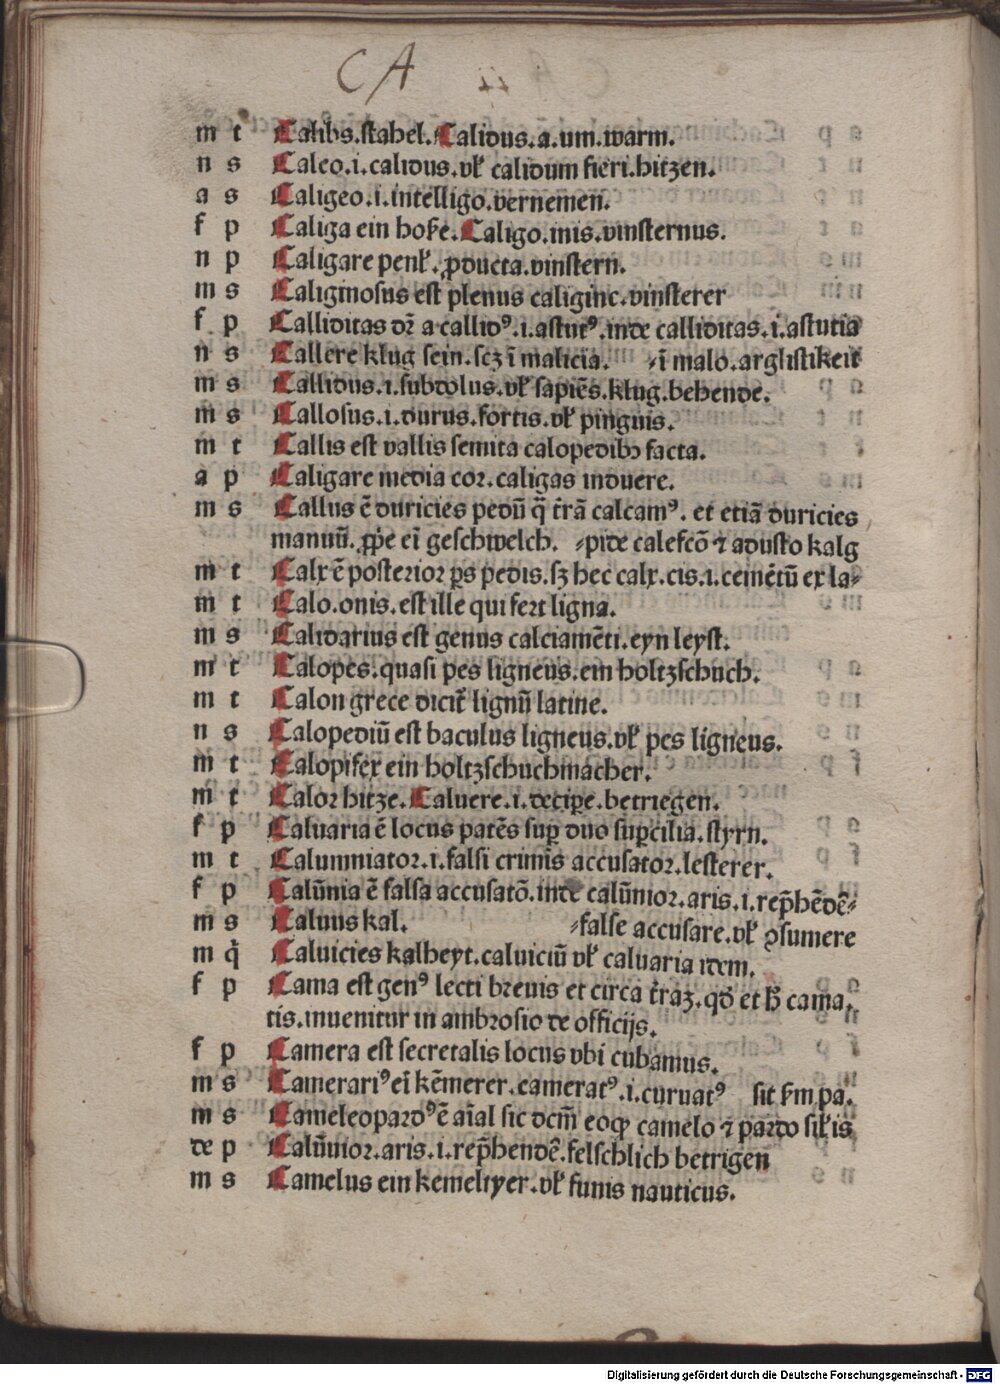 CA
m t Calibs.stahel.Calidus.a.um.warm.
n s Caleo.i.calidus.vl' calidum fieri.hitzen.
a s Caligeo.i.intelligo.vernemen.
f p Caliga ein hoße.Caligo.inis.vinsternus.
n p Caligare penl'.ꝓducta.vinstern.
m s Caliginosus est plenus caligine.vinsterer
f p Calliditas dr̃ a callidꝰ.i.astutꝰ.inde calliditas.i.astutia
n s Callere klug sein.scꝫ ĩ malicia. ⸗ĩ malo.arglistikeit
m s Callidus.i.subdolus.vl' sapiẽs.klug.behende.
m s Callosus.i.durus.fortis.vl' pinguis.
m t Callis est vallis semita calopedibꝫ facta.
a p Caligare media cor.caligas induere.
m s Callus ẽ duricies pedũ q̃ t'rã calcamꝰ. et etiã duricies
manuũ. ꝓp̃e eĩ geschwelch. ⸗pide calefcõ ⁊ adusto kalg
m t Calx ẽ posterior ꝑs pedis.sꝫ hec calx.cis.i.cemẽtũ ex la⸗
m t Calo.onis.est ille qui fert ligna.
m s Calidarius est genus calciamẽti.eyn leyst.
m t Calopes.quasi pes ligneus.ein holtzschuch.
m t Calon grece dicit' lignũ latine.
n s Calopediũ est baculus ligneus.vl' pes ligneus.
m t Calopifex ein holtzschuchmacher.
m t Calor hitze.Caluere.i.deciꝑe.betriegen.
f p Caluaria ẽ locus patẽs suꝑ duo suꝑcilia.styrn.
m t Calumniator.i.falsi criminis accusator.lesterer.
f p Calũnia ẽ falsa accusatõ.inde calũnior.aris.i.rep̃hẽdẽ⸗
m s Caluus kal. ⸗false accusare.vl' ꝯsumere
m q̇ Caluicies kalheyt.caluiciũ vl' caluaria idem.
f p Cama est genꝰ lecti breuis et circa t'raꝫ.qđ et hꝫ cama⸗
tis.inuenitur in ambrosio de officijs.
f p Camera est secretalis locus vbi cubamus.
m s Camerariꝰ eĩ kẽmerer.cameratꝰ.i.curuatꝰ sit s'm pa.
m s Cameleopardꝰ ẽ aĩal sic dcm̃ eoꝙ camelo ⁊ pardo sil'is
de p Calũnior.aris.i.rep̃hendẽ.felschlich betrigen
m s Camelus ein kemeltyer.vl' funis nauticus.
Digitalisierung gefördert durch die Deutsche Forschungsgemeinschaft - DFG